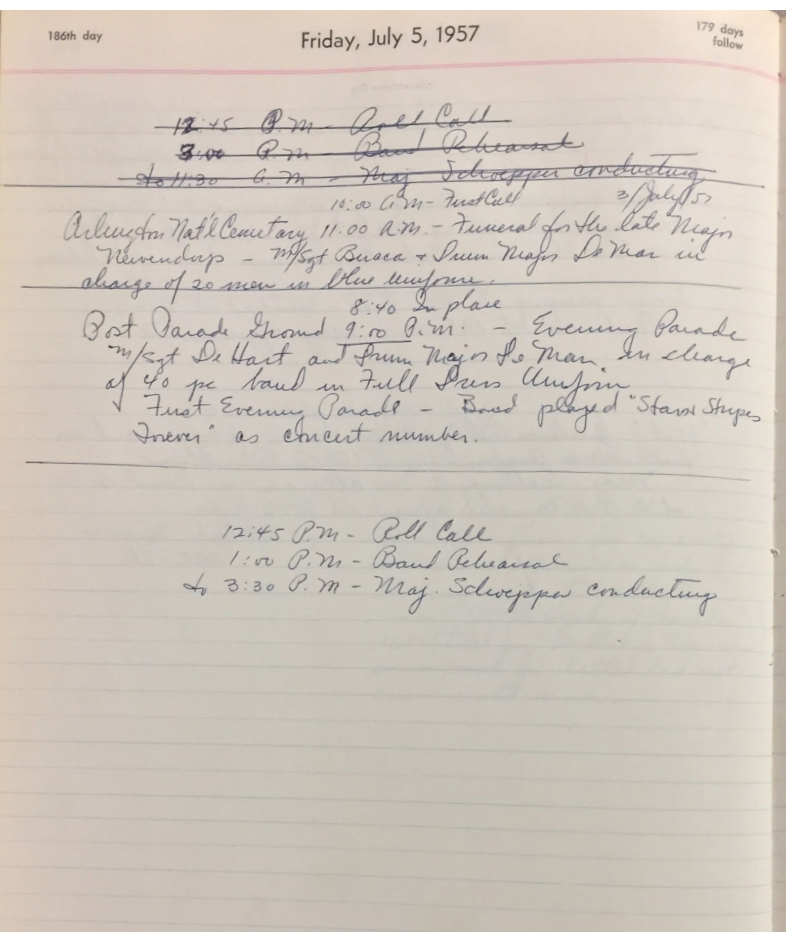 186th day
Friday, July 5, 1957
179 days
follow
12:45 P.M - Roll Call
3:00 P.M - Band Rehearsal
to 11:30 A.M - Maj Schoepper conducting
10:00 A.M - First Call 3/July/57
Arlington Nat'l Cemetary 11:00 A.M. - Funeral for the late Major
- M/Sgt & Drum Major De Mar in
charge of 20 men in blue uniforms.
8:40 In place
Post Parade Ground 9:00 P.M. - Evening Parade
M/Sgt De Hart and Drum Major De Mar in charge
of 40 pc band in Full Dress Uniform
First Evening Parade - Band played "Stars & Stripes
Forever" as concert number.
12:45 P.M - Roll Call
1:00 P.M - Band Rehearsal
to 3:30 P.M - Maj. Schoepper conducting